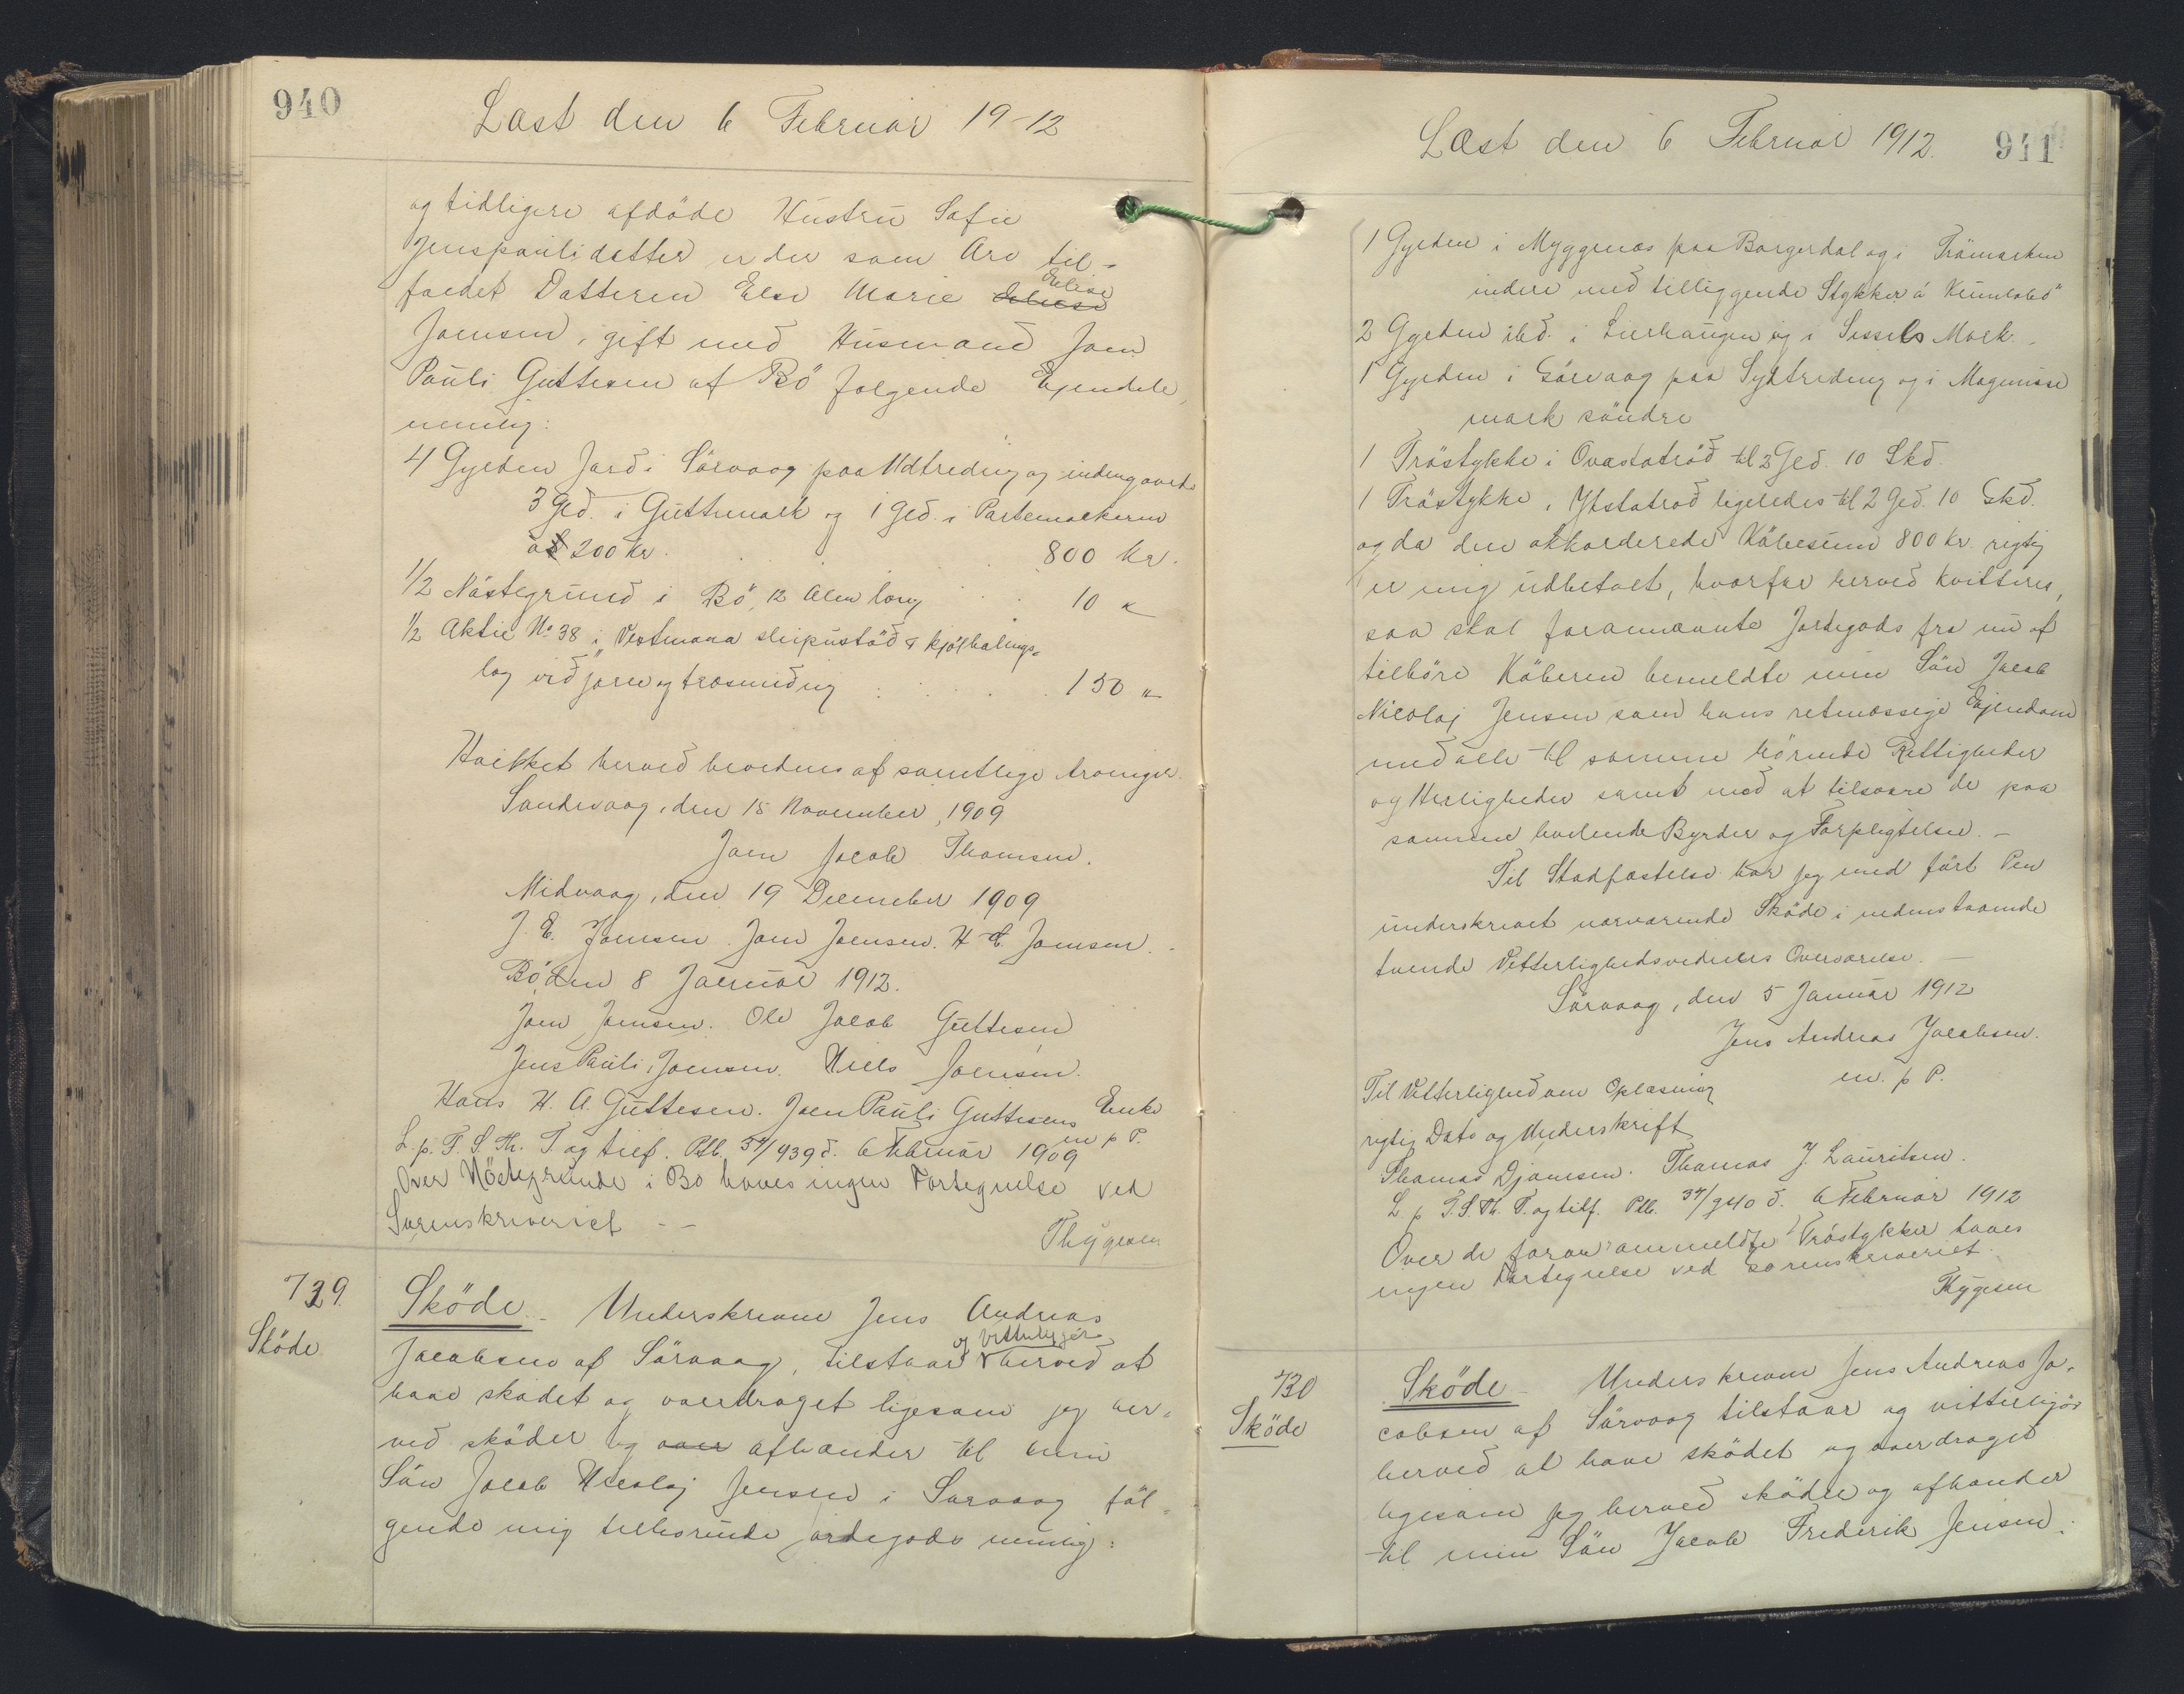 940
Læst den 6 Februar 19-12
og tidligere afdöde Hustru Sofie
Jenspaulidatter er der som Arv til-
faldet Datteren Else Marie Elliose
Joensen, gift med Husmand Joen
Pauli Guttesen af Bö folgende Ejendele,
nemlig:
4 Gylden Jord i Sörvaag paa Udtreding og indengards
3 Gld. i Guttemark og 1 Gld. i Partemarkerne
a 200 Kr. 800 Kr.
1/2 Nöstegrund i Bö, 12 Alen lang 10 "
1/2 Aktie No 38 i "Vestmana skipustöð & kjölhalings-
lag við jarn og træsmiding 150 "
Hvilket herved bevidnes af samtlige Arvinger.
Sandevaag, den 15 November, 1909
Joen Jacob Thomsen.
Midvaag, den 19 December 1909
J. E. Joensen. Joen Joensen. H. C. Joensen.
Bö, den 8 Januar 1912.
Joen Joensen. Ole Jacob Guttesen
Jens Pauli Joensen. Niels Joensen.
Hans H. A. Guttesen. Joen Pauli Guttesens Enke
m p P.
L. p. F. S. Th. T. og tilf. Ptb. 34/939 d. 6 Februar 1909
Over Nöstegrunde i Bö haves ingen Fortegnelse ved
Sorenskriveriet --
Thygesen
729.
Sköde
Sköde - Underskrevne Jens Andreas
Jacobsen af Sörvaag, tilstaar og vitterliggör herved at
have sködet og overdraget ligesom jeg her-
ved sköder og over afhænder til min
Sön Jacob Nicolaj Jensen i Sorvaag föl-
gende mig tilhörende jordegods nemlig:
Læst den 6 Februar 1912.
941
1 Gylden i Myggenæs paa Borgerdal og i Trömarken
indere med tilliggende Stykker á Kumlabö"
2 Gylden ibd. i Lierhaugen og i Sissels Mark. -
1 Gylden i Sörvaag paa Sydtreding og i Magnusse
mark söndre
1 Tröstykke i Ovastatröð til 2 Gld. 10 Skd.
1 Tröstykke i Ytstatrod ligeledes til 2 Gld. 10 Skd.
og da den akkorderede Köbesum 800 Kr. rigtig
er mig udbetalt, hvorfor herved kvitteres,
saa skal forannævnte Jordegods fra nu af
tilhöre Köberen bemeldte min Sön Jacob
Nicolaj Jensen som hans retmæssige Ejendom
med alle til samme hörende Rettigheder
og Herligheder samt mod at tilsvare de paa
samme hvilende Byrder og Forpligtelser. -
Til Stadfæstelse har jeg med fört Pen
underskrevet nærværende Sköde i nedenstaaende
tvende Vitterlighedsvidners Overværelse. -
Sörvaag, den 5 Januar 1912
Jens Andreas Jacobsen.
m. p P.
Til Vitterlighed om Oplæsning
rigtig Dato og Underskrift
Thomas Djonesen. Thomas J. Lauritsen.
L. p. F. S. Th. T. og tilf. Ptb. 34/940 d. 6 Februar 1912
Over de foran anmeldte Tröstykker haves
ingen Fortegnelse ved Sorenskriveriet.
Thygesen
730
Sköde
Sköde - Underskrevne Jens Andreas Ja-
cobsen af Sörvaag tilstaar og vitterligör
herved at have sködet og overdraget
ligesom jeg herved sköder og afhænder
til min Sön Jacob Frederik Jensen.